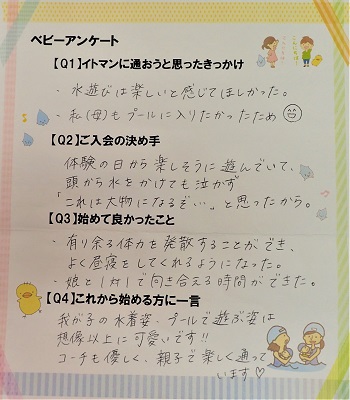 ベビーアンケート
【Q1】イトマンに通おうと思ったきっかけ
・水遊びは楽しいと感じてほしかった。
・私(母)もプールに入りたかったため
【Q2】ご入会の決め手
体験の日から楽しそうに遊んでいて、
頭から水をかけても泣かず
「これは大物になるぞ…」と思ったから。
【Q3】始めて良かったこと
・有り余る体力を発散することができ、
よく昼寝をしてくれるようになった。
・娘と1対1で向き合える時間ができた。
【Q4】これから始める方に一言
我が子の水着姿・プールで遊ぶ姿は
想像以上に可愛いです!!
コーチも優しく、親子で楽しく通って
います♡